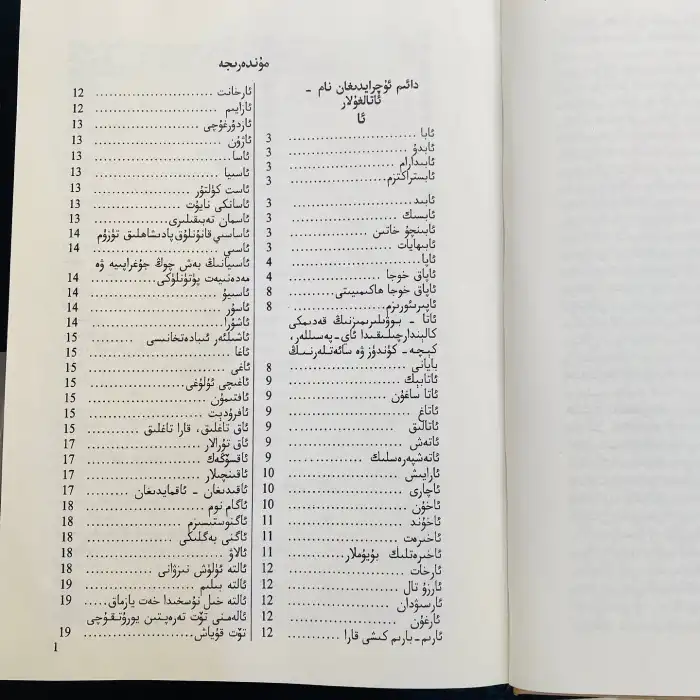 مۇندەرىجە
دائىم ئۇچرايدىغان نام -
ئاتالغۇلار
ئا
ئابا ........ 3
ئابدۇ ........ 3
ئابىدارام ........ 3
ئابىستراكتزم ........ 3
ئابىد ........ 3
ئابىسك ........ 3
ئابىنچۇ خاتىن ........ 3
ئابىھايات ........ 3
ئاپا ........ 4
ئاپاق خوجا ........ 4
ئاپاق خوجا ھاكىمىيىتى ........ 8
ئاپىرىئورىزم ........ 8
ئاتا - بوۋىلىرىمىزنىڭ قەدىمكى
كالېندارچىلىقىدا ئاي-پەسىللەر،
كېچە- كۈندۈز ۋە سائەتلەرنىڭ
بايانى ........ 8
ئاتابېك ........ 9
ئاتا ساغۇن ........ 9
ئاتاغ ........ 9
ئاتالىق ........ 9
ئاتەش ........ 9
ئاتەشپەرەسلىك ........ 9
ئارايىش ........ 10
ئاچارى ........ 10
ئاخۇن ........ 10
ئاخۇند ........ 11
ئاخىرەت ........ 11
ئاخىرەتلىك بۇيۇملار ........ 11
ئارخات ........ 12
ئارزۇ تال ........ 12
ئارسىۋدان ........ 12
ئارغۇن ........ 12
ئارىم-بارىم كىشى قارا ........ 12
ئارخانت ........ 12
ئازايىم ........ 12
ئازدۇرغۇچى ........ 13
ئازۇن ........ 13
ئاسا ........ 13
ئاسىيا ........ 13
ئاست كۇلتۇر ........ 13
ئاسانكى نايۇت ........ 13
ئاسمان تەبىقىلىرى ........ 13
ئاساسىي قانۇنلۇق پادىشاھلىق تۈزۈم 14
ئاسىي ........ 14
ئاسىيانىڭ بەش چوڭ جۇغراپىيە ۋە
مەدەنىيەت پۈتۈنلۈكى ........ 14
ئاسىيۇ ........ 14
ئاسۇر ........ 14
ئاشۇرا ........ 14
ئاشىلئەر ئىبادەتخانىسى ........ 15
ئاغا ........ 15
ئاغى ........ 15
ئاغىچى ئۇلۇغى ........ 15
ئافتىمۇن ........ 15
ئافرۇدىت ........ 15
ئاق تاغلىق، قارا تاغلىق ........ 15
ئاق تۇرالار ........ 17
ئاقسۆڭەك ........ 17
ئاقىنچىلار ........ 17
ئاقىدىغان - ئاقمايدىغان ........ 17
ئاگام نوم ........ 18
ئاگنوستىسىزم ........ 18
ئاگنى بەگلىكى ........ 18
ئالاۋ ........ 18
ئالتە ئۈلۈش نىرۋانى ........ 18
ئالتە بىلىم ........ 19
ئالتە خىل نۇسخىدا خەت يازماق ........ 19
ئالەمنى تۆت تەرەپتىن يورۇتقۇچى
تۆت قۇياش ........ 19
1